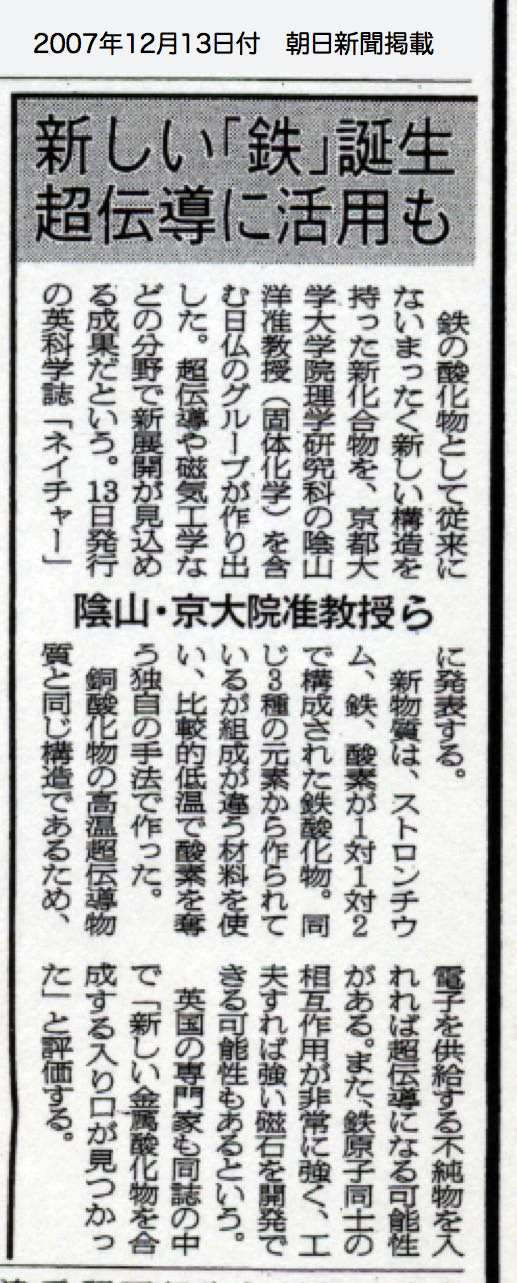 2007年12月13日付　朝日新聞掲載
新しい「鉄」誕生
超伝導に活用も
鉄の酸化物として従来に
ないまったく新しい構造を
持った新化合物を、京都大
学大学院理学研究科の陰山
洋准教授（固体化学）を含
む日仏のグループが作り出
した。超伝導や磁気工学な
どの分野で新展開が見込め
る成果だという。13日発行
の英科学誌「ネイチャー」
陰山・京大院准教授ら
に発表する。
新物質は、ストロンチウ
ム、鉄、酸素が1対1対2
で構成された鉄酸化物。同
じ3種の元素から作られて
いるが組成が違う材料を使
い、比較的低温で酸素を奪
う独自の手法で作った。
銅酸化物の高温超伝導物
質と同じ構造であるため、
電子を供給する不純物を入
れれば超伝導になる可能性
がある。また、鉄原子同士の
相互作用が非常に強く、工
夫すれば強い磁石を開発で
きる可能性もあるという。
英国の専門家も同誌の中
で「新しい金属酸化物を合
成する入り口が見つかっ
た」と評価する。